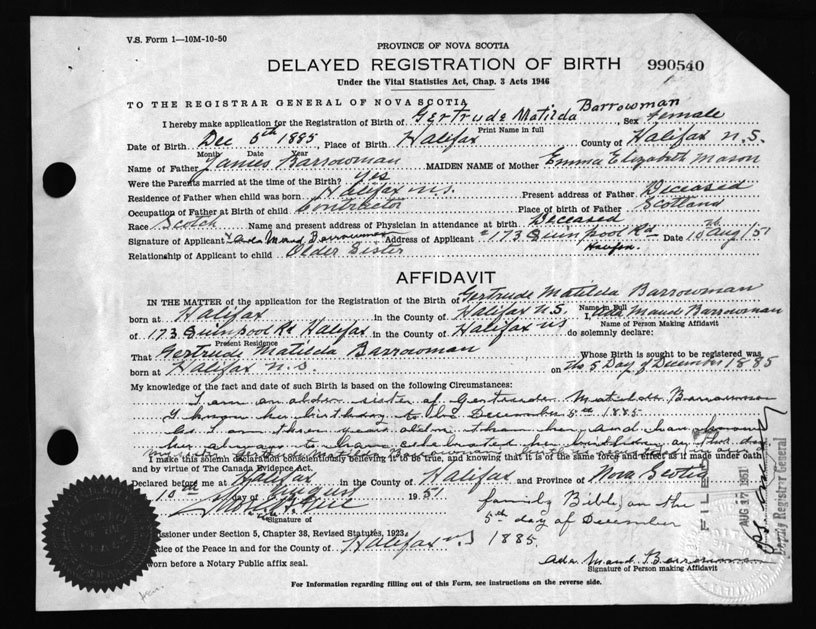 V.S. Form 1—10M-10-50
PROVINCE OF NOVA SCOTIA
DELAYED REGISTRATION OF BIRTH 990540
Under the Vital Statistics Act, Chap. 3 Acts 1946
TO THE REGISTRAR GENERAL OF NOVA SCOTIA
I hereby make application for the Registration of Birth of Gertrude Matilda Barrowman, Sex female
Print Name in full
Date of Birth Dec 5th 1885, Place of Birth Halifax County of Halifax N.S.
Month Date Year
Name of Father James Barrowman MAIDEN NAME of Mother Emma Elizabeth Mason
Were the Parents married at the time of the Birth? yes
Residence of Father when child was born Halifax N.S. Present address of Father Deceased
Occupation of Father at Birth of child Contractor Place of birth of Father Scotland
Race Scotch Name and present address of Physician in attendance at birth Deceased
Signature of Applicant Ada Maud Barrowman Address of Applicant 173 Quinpool Rd Halifax Date 10 Aug/51
Relationship of Applicant to child Older Sister
AFFIDAVIT
IN THE MATTER of the application for the Registration of the Birth of Gertrude Matilda Barrowman
Name in Full
born at Halifax in the County of Halifax N.S. I, Ada Maud Barrowman
Name of Person Making Affidavit
of 173 Quinpool Rd Halifax in the County of Halifax N S do solemnly declare:
Present Residence
That Gertrude Matilda Barrowman Whose Birth is sought to be registered was
born at Halifax N.S. on the 5 Day of December 1885
My knowledge of the fact and date of such Birth is based on the following Circumstances:
I am an older sister of Gertrude Matilda Barrowman
I know her birthday to be December 5th 1885
As I am three years older than her, and have known
her always to have celebrated her birthday on that day
Gertrude Matilda Barrowman birth
I make this solemn declaration conscientiously believing it to be true, and knowing that it is of the same force and effect as if made under oath
and by virtue of The Canada Evidence Act.
Declared before me at Halifax in the County of Halifax and Province of Nova Scotia
10th day of August 1951
family Bible, on the
Signature of
5th day of December
missioner under Section 5, Chapter 38, Revised Statutes, 1923
1885.
tice of the Peace in and for the County of Halifax N S
orn before a Notary Public affix seal.
Ada Maud Barrowman
Signature of Person making Affidavit
For Information regarding filling out of this Form, see instructions on the reverse side.
FILED
AUG 17 1951
Deputy Registrar General